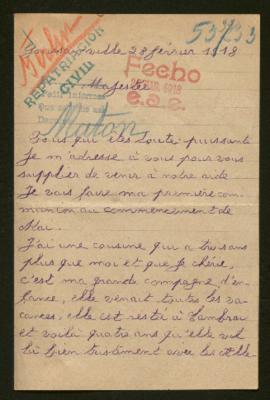 53733
28 février 1918
Fecho
1918
e.a.c.
REPATRIATION
CIVIL
Majesté
Vous qui êtes toute puissante
Je m'adresse à vous pour vous
supplier de venir à notre aide
Je vais faire ma première com
munion au commencement de
Mai.
J'ai une cousine qui a trois ans
plus que moi et que je chérie,
c'est ma grande compagne d'en-
fance, elle venait toutes les va-
cances, elle est resté à Cambrai
et voilà quatre ans qu'elle vit
là bien tristement avec les Alle-